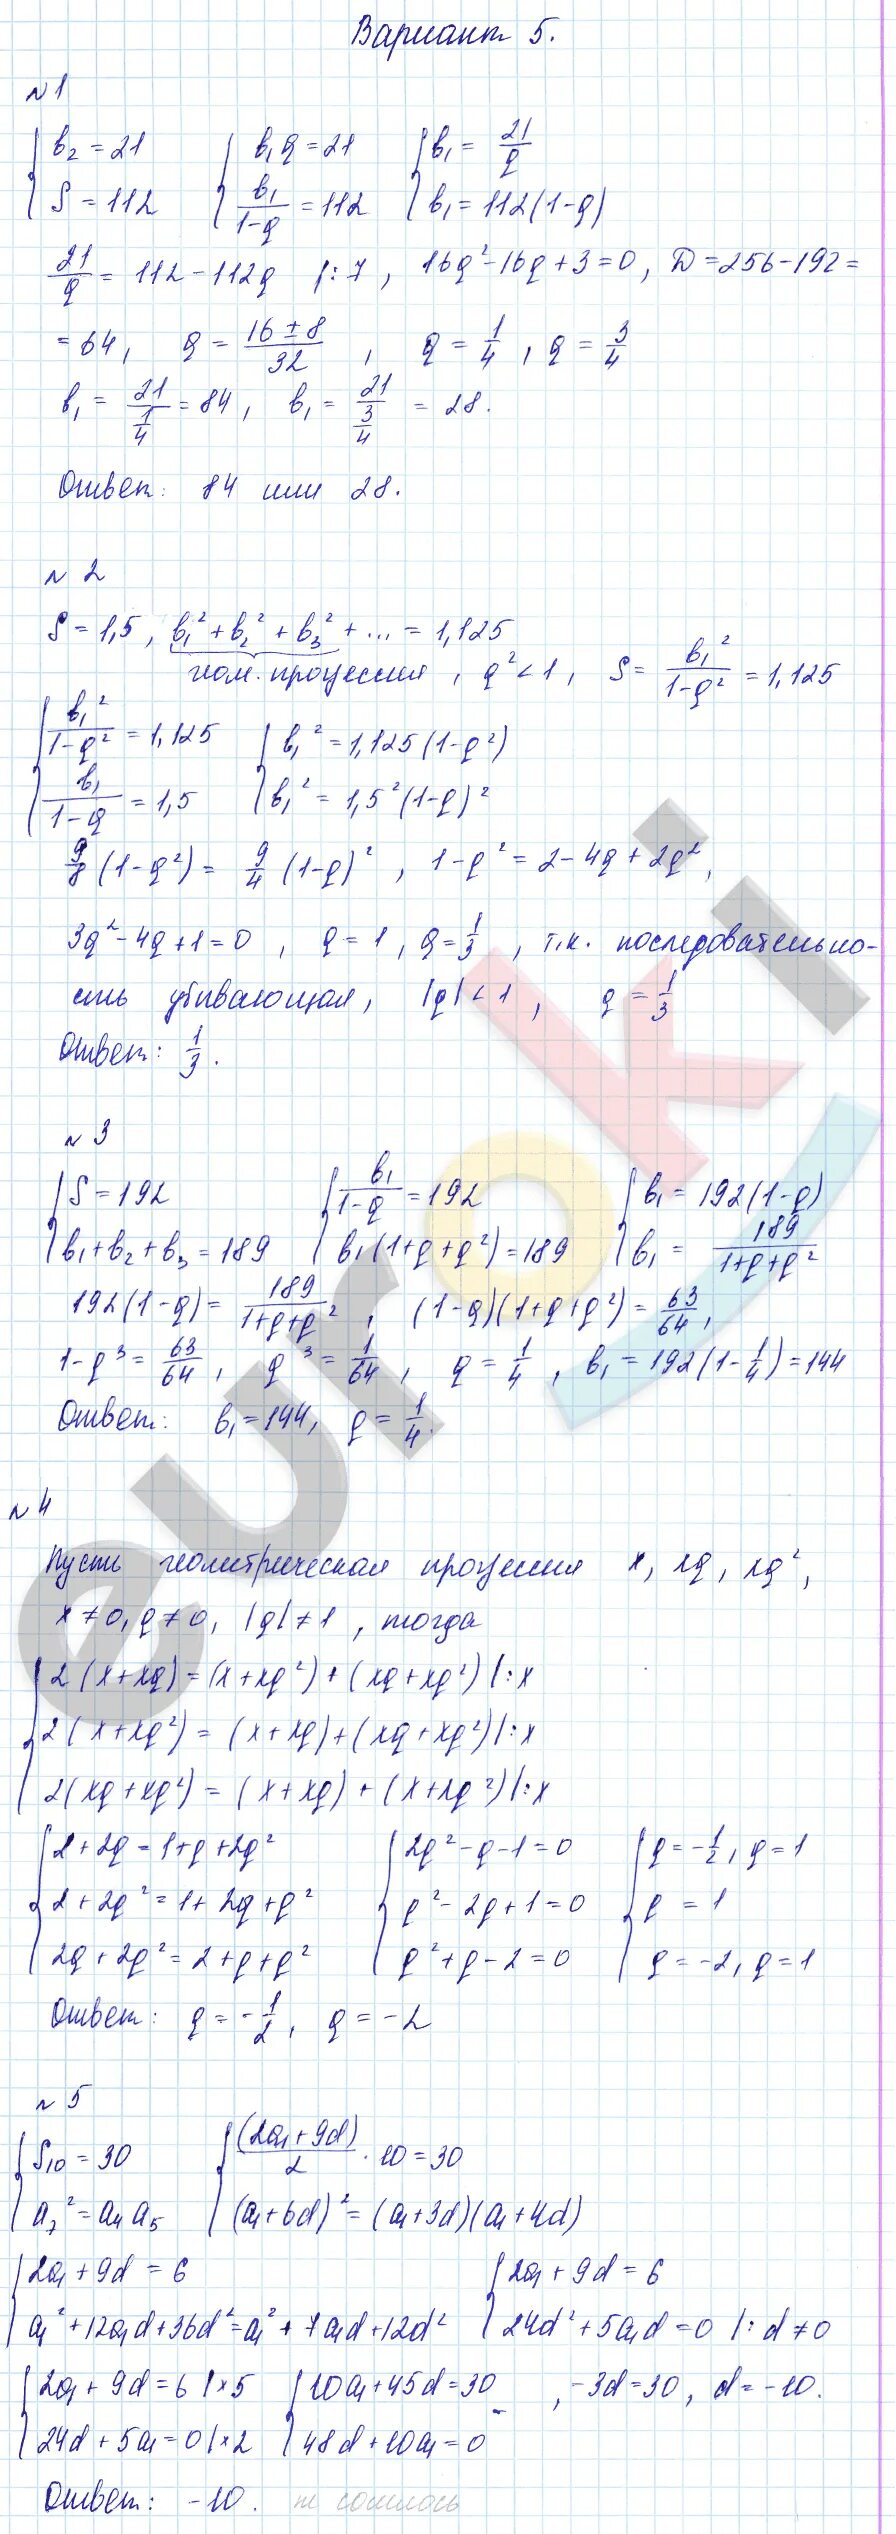 Вариант 5.
№1
{ b₂ = 21 { b₁q = 21 { b₁ = 21/q
{ S = 112 { b₁/(1-q) = 112 { b₁ = 112(1-q)
21/q = 112 - 112q |:7, 16q² - 16q + 3 = 0, D = 256 - 192 =
= 64, q = (16 ± 8)/32, q = 1/4, q = 3/4
b₁ = 21/(1/4) = 84, b₁ = 21/(3/4) = 28.
Ответ: 84 или 28.
№2
S = 1,5, b₁² + b₂² + b₃² + ... = 1,125
геом. прогрессия, q² < 1, S = b₁²/(1-q²) = 1,125
{ b₁²/(1-q²) = 1,125 { b₁² = 1,125(1-q²)
{ b₁/(1-q) = 1,5 { b₁² = 1,5²(1-q)²
9/8 (1-q²) = 9/4 (1-q)², 1-q² = 2-4q+2q²,
3q² - 4q + 1 = 0, q = 1, q = 1/3, т.к. последовательно-
сть убывающая, |q| < 1, q = 1/3
Ответ: 1/3.
№3
{ S = 192 { b₁/(1-q) = 192 { b₁ = 192(1-q)
{ b₁+b₂+b₃ = 189 { b₁(1+q+q²) = 189 { b₁ = 189/(1+q+q²)
192(1-q) = 189/(1+q+q²), (1-q)(1+q+q²) = 63/64,
1-q³ = 63/64, q³ = 1/64, q = 1/4, b₁ = 192(1-1/4) = 144
Ответ: b₁ = 144, q = 1/4.
№4
Пусть геометрическая прогрессия x, xq, xq²,
x ≠ 0, q ≠ 0, |q| ≠ 1, тогда
{ 2(x+xq) = (x+xq²) + (xq+xq²) |:x
{ 2(x+xq²) = (x+xq) + (xq+xq²) |:x
{ 2(xq+xq²) = (x+xq) + (x+xq²) |:x
{ 2+2q = 1+q+2q² { 2q²-q-1 = 0 { q = -1/2, q = 1
{ 2+2q² = 1+2q+q² { q²-2q+1 = 0 { q = 1
{ 2q+2q² = 2+q+q² { q²+q-2 = 0 { q = -2, q = 1
Ответ: q = -1/2, q = -2
№5
{ S₁₀ = 30 { (2a₁+9d)/2 · 10 = 30
{ a₇² = a₄a₅ { (a₁+6d)² = (a₁+3d)(a₁+4d)
{ 2a₁+9d = 6 { 2a₁+9d = 6
{ a₁²+12a₁d+36d² = a₁²+7a₁d+12d² { 24d²+5a₁d = 0 |:d≠0
{ 2a₁+9d = 6 |×5 { 10a₁+45d = 30 -, -3d = 30, d = -10.
{ 24d+5a₁ = 0 |×2 { 48d+10a₁ = 0
Ответ: -10. не сошлось
euroki